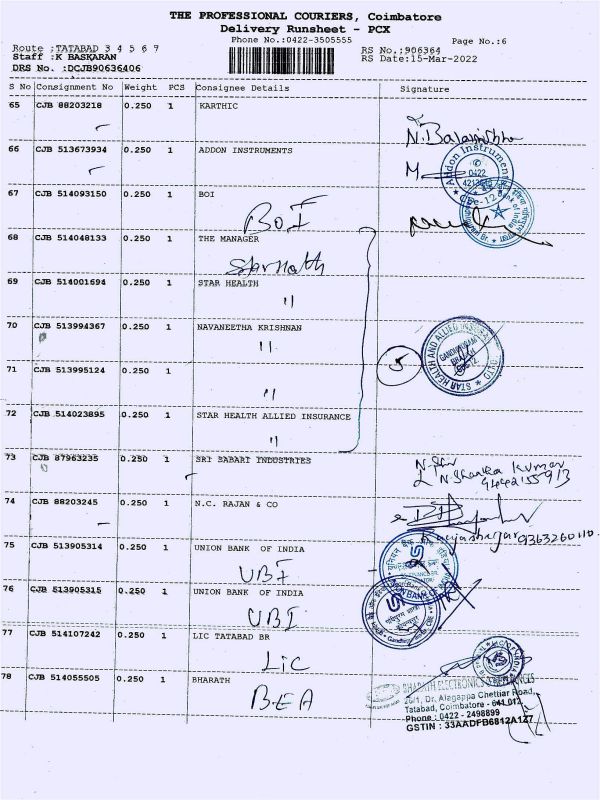 THE PROFESSIONAL COURIERS, Coimbatore
Delivery Runsheet - PCX
Phone No.:0422-3505555
Page No.:6
Route :TATABAD 3 4 5 6 7
RS No.:906364
Staff :K BASKARAN
RS Date:15-Mar-2022
DRS No. :DCJB90636406
S No Consignment No Weight PCS Consignee Details Signature
65 CJB 88203218 0.250 1 KARTHIC
66 CJB 513673934 0.250 1 ADDON INSTRUMENTS
Addon Instruments
0422
67 CJB 514093150 0.250 1 BOI
BOI
68 CJB 514048133 0.250 1 THE MANAGER
Star Health
69 CJB 514001694 0.250 1 STAR HEALTH
"
70 CJB 513994367 0.250 1 NAVANEETHA KRISHNAN
"
STAR HEALTH AND ALLIED INSURANCE
GANDHIPURAM
BRANCH
5
71 CJB 513995124 0.250 1
"
72 CJB 514023895 0.250 1 STAR HEALTH ALLIED INSURANCE
"
73 CJB 87963235 0.250 1 SRI SABARI INDUSTRIES
N. Shanka Kumar
9442155913
74 CJB 88203245 0.250 1 N.C. RAJAN & CO
9363260110
75 CJB 513905314 0.250 1 UNION BANK OF INDIA
UBI
76 CJB 513905315 0.250 1 UNION BANK OF INDIA
UBI
77 CJB 514107242 0.250 1 LIC TATABAD BR
LIC
78 CJB 514055505 0.250 1 BHARATH
BEA
BHARATH ELECTRONICS & APPLIANCES
26/1, Dr. Alagappa Chettiar Road,
Tatabad, Coimbatore - 641 012.
Phone : 0422 - 2498899
GSTIN : 33AADFB6812A1Z7